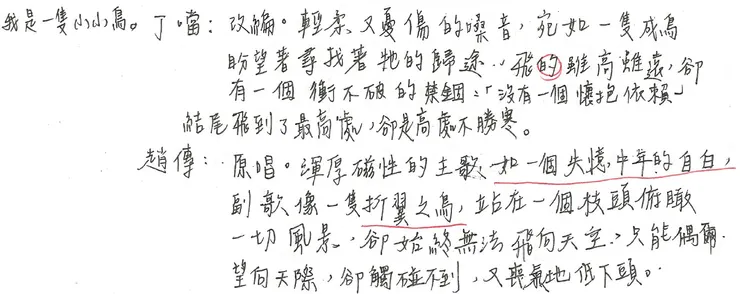 我是一隻小小鳥。丁噹：改編。輕柔又憂傷的嗓音，宛如一隻成鳥
盼望著尋找著牠的歸途..飛的雖高雖遠，卻
有一個衝不破的禁錮:「沒有一個懷抱依賴」
結尾飛到了最高處，卻是高處不勝寒。
趙傳：原唱。渾厚磁性的主歌、如一個失意中年的自白，
副歌像一隻折翼之鳥，站在一個枝頭俯瞰
一切風景，卻始終無法飛向天空..只能偶爾
望向天際，卻觸碰不到，又喪氣地低下頭。